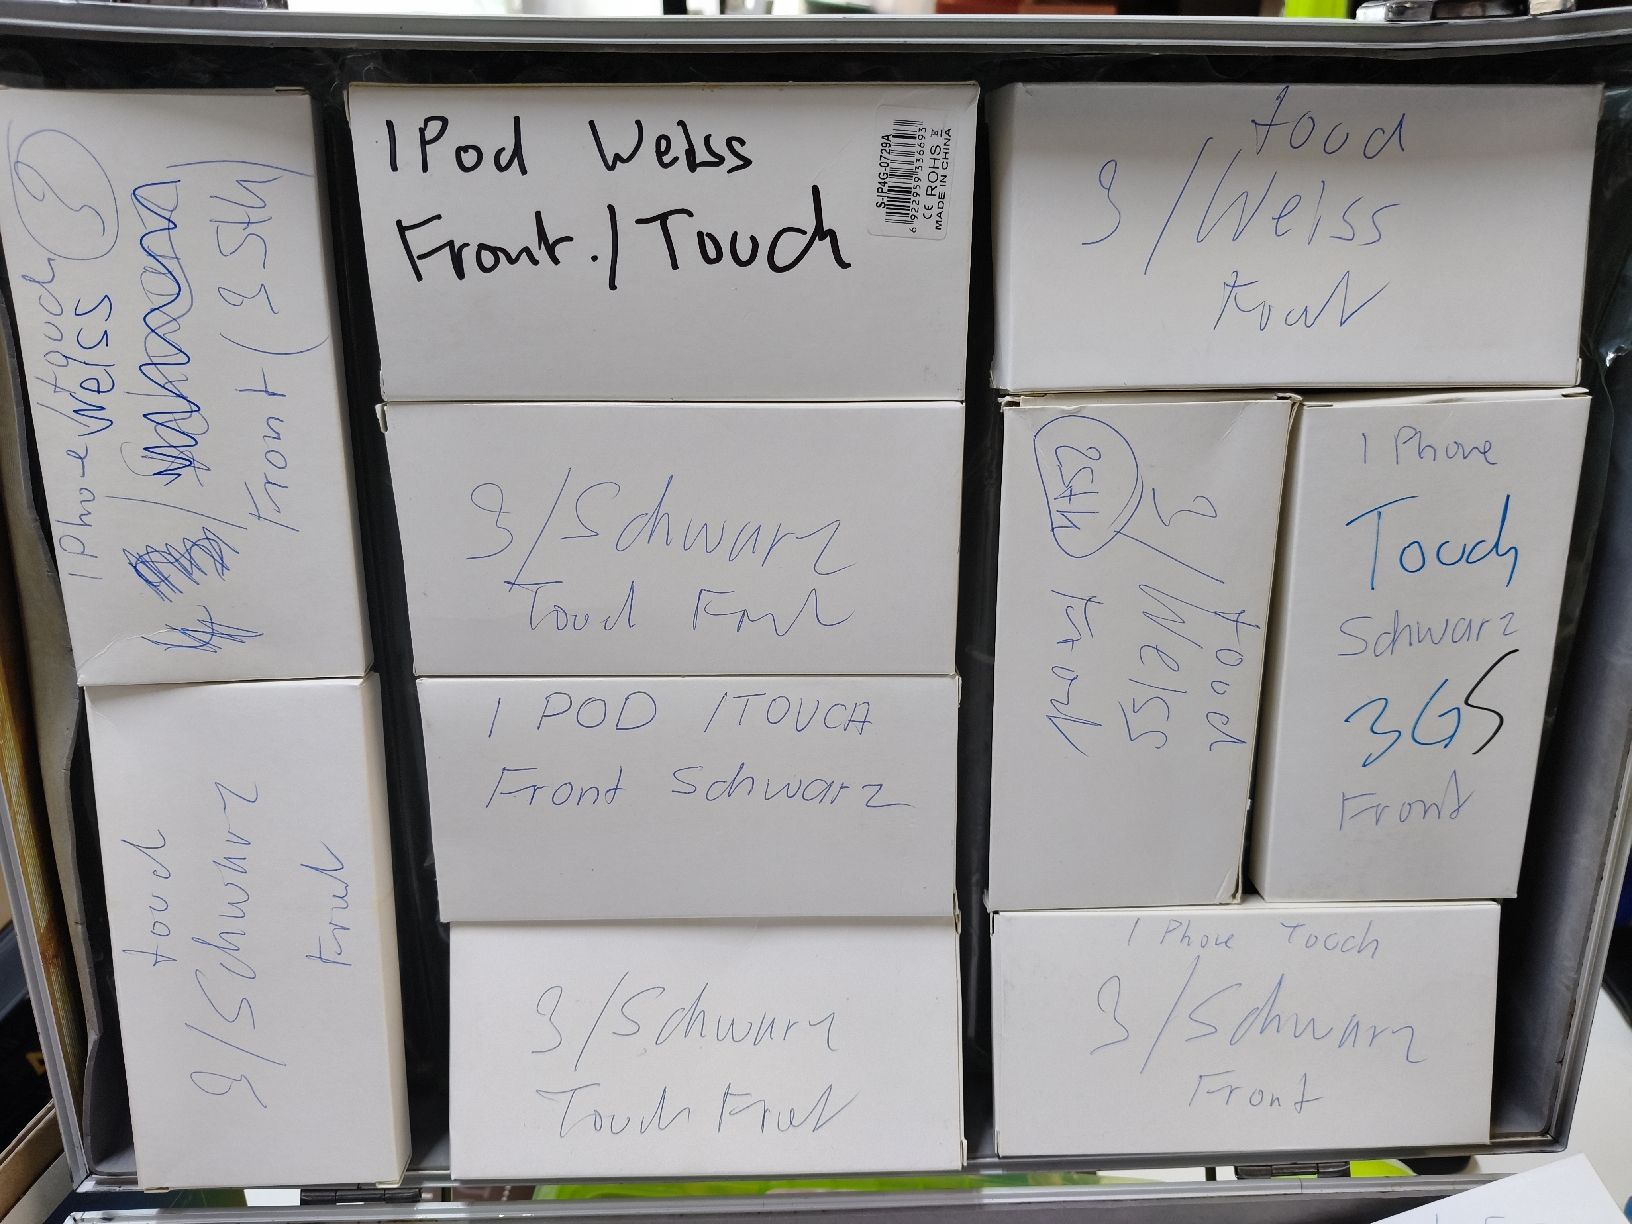 IPhone touch
3
Weiss
Front (3 Sth)
touch
3/Schwarz
Front
IPod Weiss
Front./Touch
S-IP4G-0729A
6 922959 336693
CE ROHS
MADE IN CHINA
3/Schwarz
Touch Front
I POD /TOUCH
Front Schwarz
3/Schwarz
Touch Front
touch
3/Weiss
Front
2Sth
3/Weiss
touch
Front
I Phone
Touch
Schwarz
3GS
Front
I Phone Touch
3/Schwarz
Front